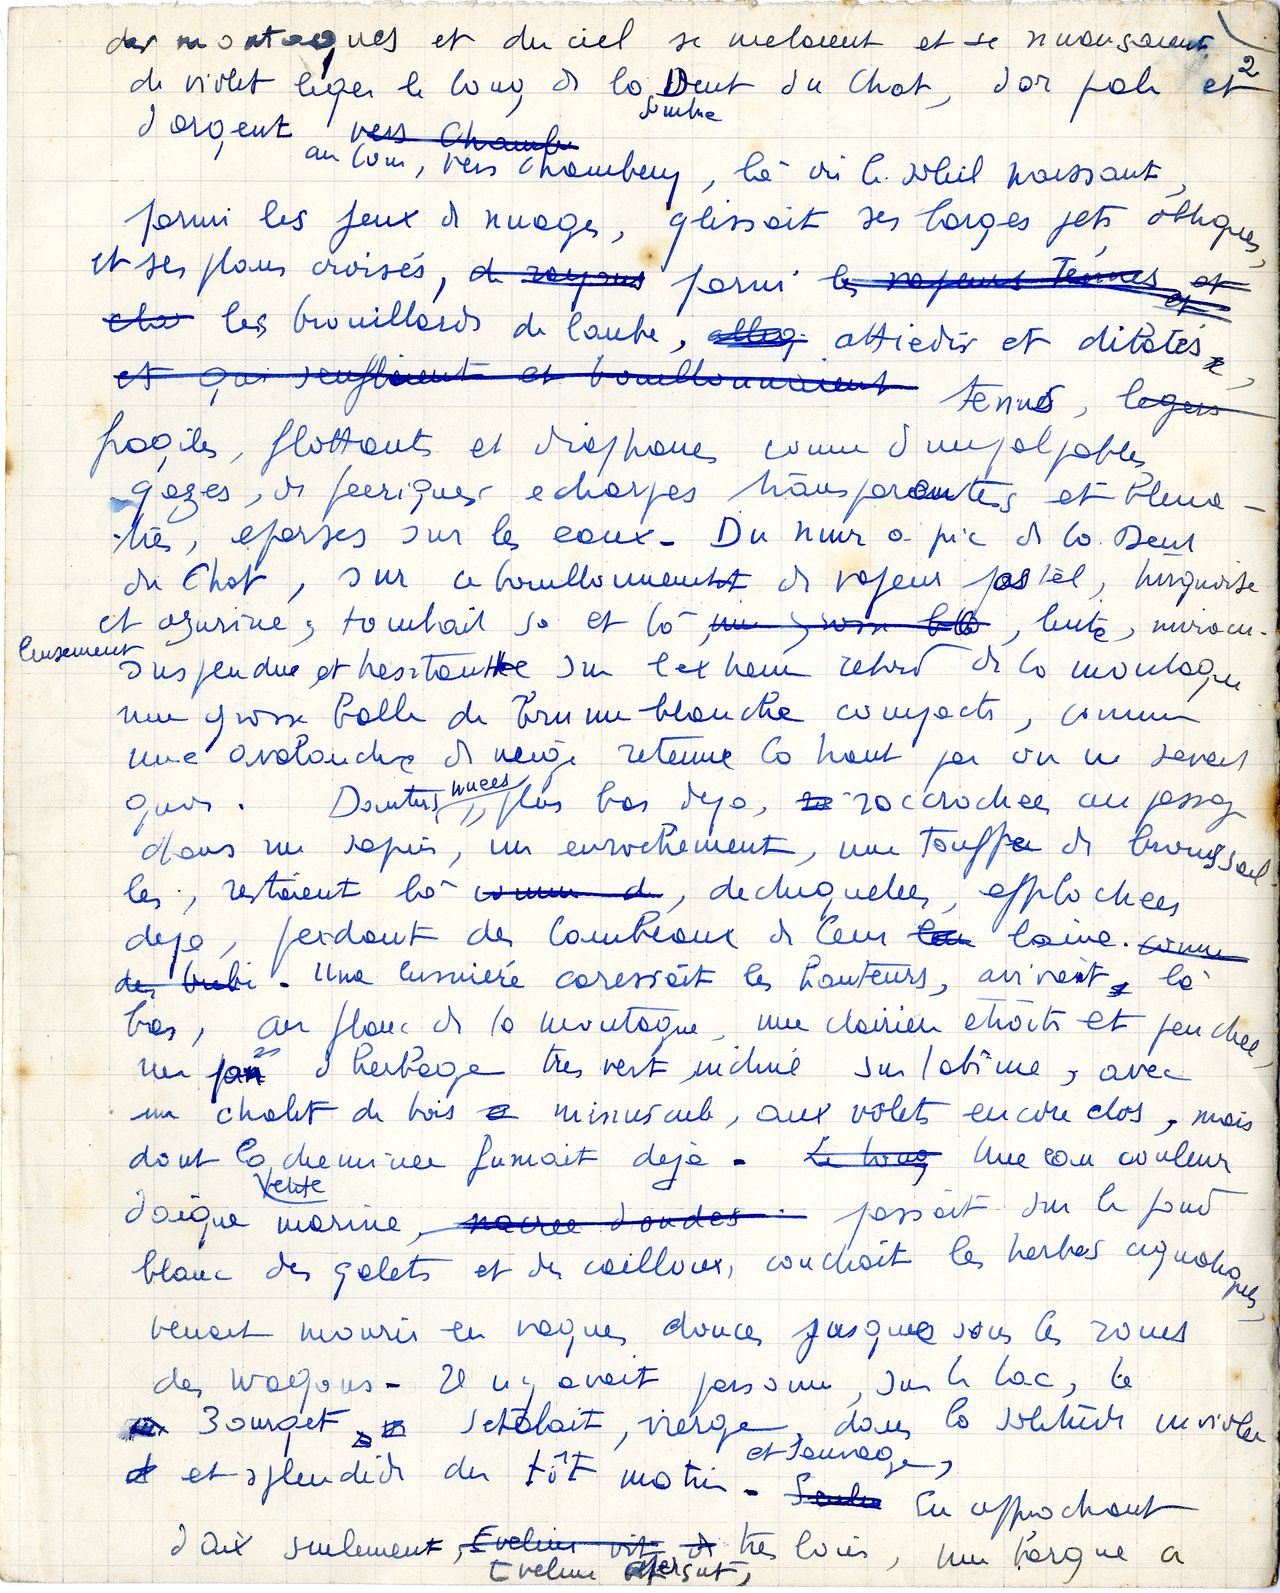 2
des montagnes et du ciel se melaient et se nuançaient
de violet leger le long de la Dent du Chat, d'or pale et
sombre
d'argent vers Chambe
au loin, vers Chambery, là où le soleil naissant,
parmi les jeux de nuages, glissait ses larges jets obliques,
et ses plans croisés, de rayons parmi les vapeurs tenues et
et
cha les brouillards de l'aube, alleg attiedis et dilatés,
et qui s'enflaient et bouillonnaient tenus, legers
fragiles, flottants et diaphanes comme d'impalpables
gazes, de feeriques echarpes transparentes et bleua-
tres, eparses sur les eaux - Du mur a pic de la Dent
du Chat, sur ce bouillonnement de vapeur pastel, turquoise
et azurine, tombait ça et là, une grosse bla, lente, miracu-
leusement
suspendue et hesitante sur l'extreme rebord de la montagne
une grosse balle de brume blanche compacte, comme
une avalanche de neige retenue là haut par on ne savait
quoi. D'autres nuees, plus bas deja, raccrochees au passage
dans un sapin, un enrochement, une touffe de broussail-
les, restaient là comme d, dechiquetees, effilochees
deja, perdant des lambeaux de leur laine. comme
des brebi - Une lumiere caressait les hauteurs, avivait, là
bas, au flanc de la montagne, une clairiere etroite et penchee,
un pan d'herbage tres vert, incliné sur l'abîme, avec
un chalet de bois minuscule, aux volets encore clos, mais
dont la cheminee fumait deja - Le long Une eau couleur
verte
d'aigue marine, nacree d'ondes passait sur le fond
blanc des galets et des cailloux, couchait les herbes aquatiques,
venait mourir en vagues douces jusque sous les roues
des wagons - Il n'y avait personne, sur le lac, le
Bourget s'etalait, vierge, dans la solitude inviolee
et sauvage,
et splendide du tôt matin - Seule En approchant
d'Aix seulement, Eveline vit de tres loin, une barque a
Eveline apersut,